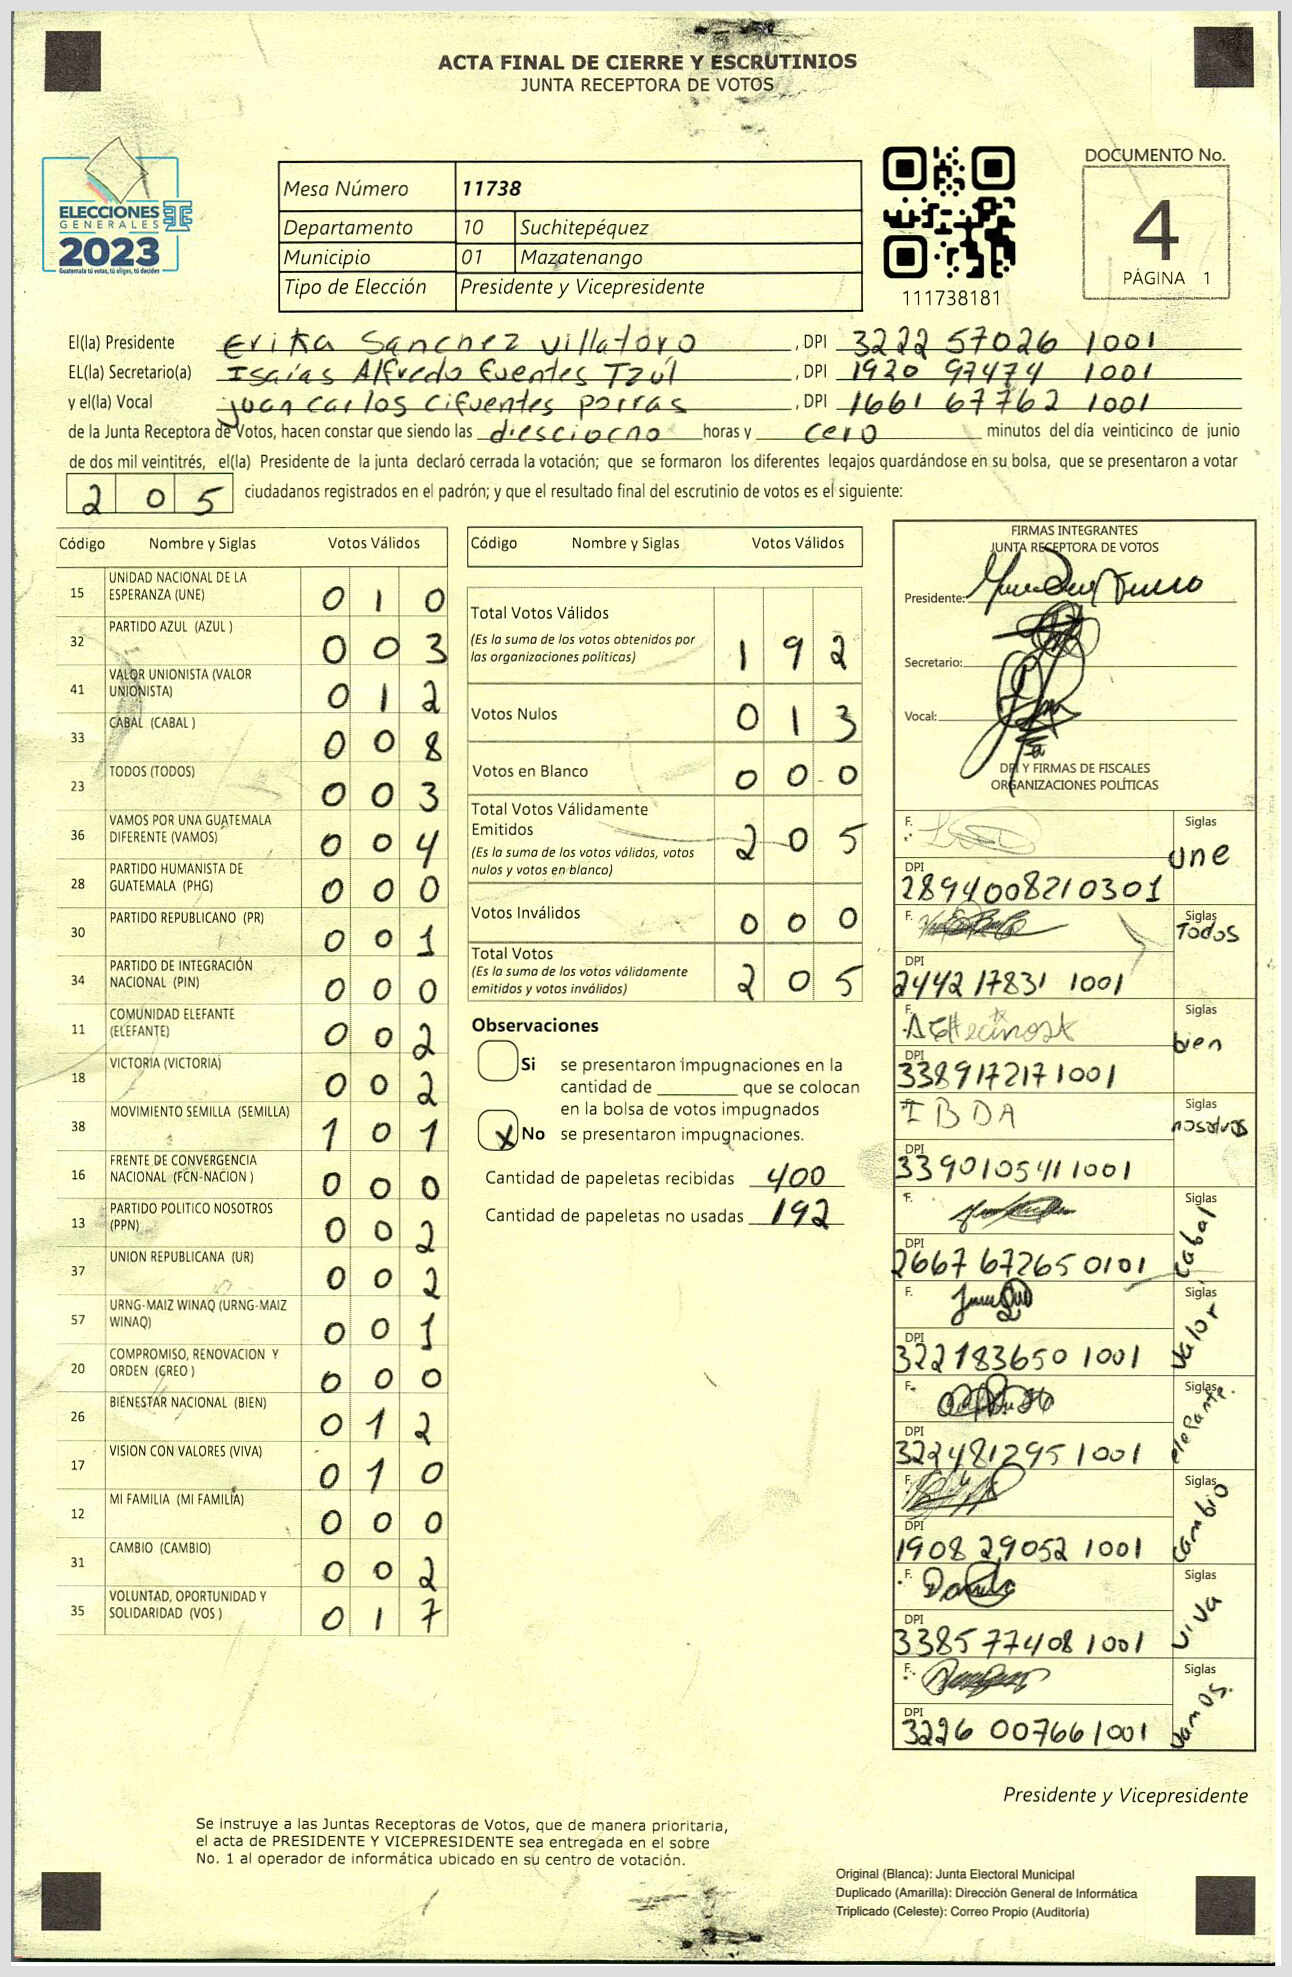 ACTA FINAL DE CIERRE Y ESCRUTINIOS
JUNTA RECEPTORA DE VOTOS
ELECCIONES
GENERALES
2023
Guatemala tú votas, tú eliges, tú decides
Mesa Número 11738
Departamento 10 Suchitepéquez
Municipio 01 Mazatenango
Tipo de Elección Presidente y Vicepresidente
111738181
DOCUMENTO No.
4
PÁGINA 1
El(la) Presidente Erika Sanchez Villatoro, DPI 3222 57026 1001
EL(la) Secretario(a) Isaías Alfredo Fuentes Tzúl, DPI 1920 97474 1001
y el(la) Vocal Juan Carlos Cifuentes Porras, DPI 1661 67762 1001
de la Junta Receptora de Votos, hacen constar que siendo las diesciocho horas y cero minutos del día veinticinco de junio
de dos mil veintitrés, el(la) Presidente de la junta declaró cerrada la votación; que se formaron los diferentes legajos guardándose en su bolsa, que se presentaron a votar
205 ciudadanos registrados en el padrón; y que el resultado final del escrutinio de votos es el siguiente:
Código Nombre y Siglas Votos Válidos
15 UNIDAD NACIONAL DE LA ESPERANZA (UNE) 010
32 PARTIDO AZUL (AZUL ) 003
41 VALOR UNIONISTA (VALOR UNIONISTA) 012
33 CABAL (CABAL ) 008
23 TODOS (TODOS) 003
36 VAMOS POR UNA GUATEMALA DIFERENTE (VAMOS) 004
28 PARTIDO HUMANISTA DE GUATEMALA (PHG) 000
30 PARTIDO REPUBLICANO (PR) 001
34 PARTIDO DE INTEGRACIÓN NACIONAL (PIN) 000
11 COMUNIDAD ELEFANTE (ELEFANTE) 002
18 VICTORIA (VICTORIA) 002
38 MOVIMIENTO SEMILLA (SEMILLA) 101
16 FRENTE DE CONVERGENCIA NACIONAL (FCN-NACION ) 000
13 PARTIDO POLITICO NOSOTROS (PPN) 002
37 UNION REPUBLICANA (UR) 002
57 URNG-MAIZ WINAQ (URNG-MAIZ WINAQ) 001
20 COMPROMISO, RENOVACION Y ORDEN (CREO ) 000
26 BIENESTAR NACIONAL (BIEN) 012
17 VISION CON VALORES (VIVA) 010
12 MI FAMILIA (MI FAMILIA) 000
31 CAMBIO (CAMBIO) 002
35 VOLUNTAD, OPORTUNIDAD Y SOLIDARIDAD (VOS ) 017
Código Nombre y Siglas Votos Válidos
Total Votos Válidos 192
(Es la suma de los votos obtenidos por
las organizaciones políticas)
Votos Nulos 013
Votos en Blanco 000
Total Votos Válidamente
Emitidos 205
(Es la suma de los votos válidos, votos
nulos y votos en blanco)
Votos Inválidos 000
Total Votos 205
(Es la suma de los votos válidamente
emitidos y votos inválidos)
Observaciones
Si se presentaron impugnaciones en la
cantidad de ________ que se colocan
en la bolsa de votos impugnados
X No se presentaron impugnaciones.
Cantidad de papeletas recibidas 400
Cantidad de papeletas no usadas 192
FIRMAS INTEGRANTES
JUNTA RECEPTORA DE VOTOS
Presidente:
Secretario:
Vocal:
DPI Y FIRMAS DE FISCALES
ORGANIZACIONES POLÍTICAS
F. Siglas une
DPI 2894008210301
F. Siglas Todos
DPI 2442 17831 1001
F. Siglas bien
DPI 3389172171001
F. IBDA Siglas nosotros
DPI 3390105411001
F. Siglas Cabal
DPI 2667 67265 0101
F. Siglas Valor
DPI 322183650 1001
F. Siglas elefante.
DPI 322481295 1001
F. Siglas Cambio
DPI 1908 29052 1001
F. Siglas Viva
DPI 3385 77408 1001
F. Siglas Vamos.
DPI 3226 00766 1001
Presidente y Vicepresidente
Se instruye a las Juntas Receptoras de Votos, que de manera prioritaria,
el acta de PRESIDENTE Y VICEPRESIDENTE sea entregada en el sobre
No. 1 al operador de informática ubicado en su centro de votación.
Original (Blanca): Junta Electoral Municipal
Duplicado (Amarilla): Dirección General de Informática
Triplicado (Celeste): Correo Propio (Auditoría)